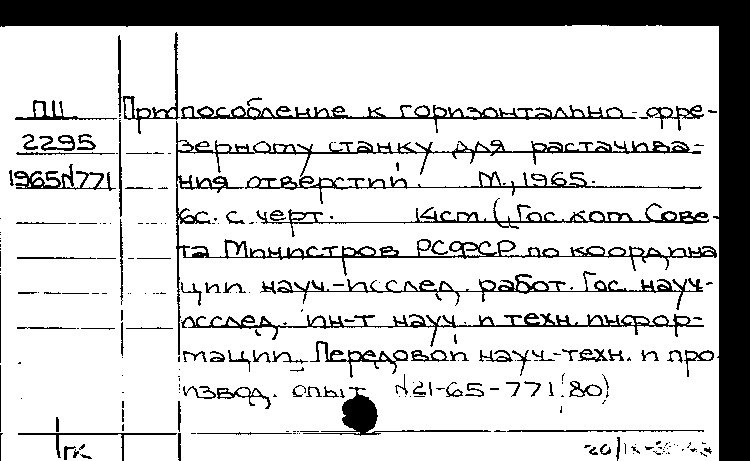 ПШ
2295
1965N771
Приспособление к горизонтально-фре-
зерному станку для растачива-
ния отверстий. М., 1965.
6с. с черт. 14см. (Гос. ком. Сове-
та Министров РСФСР по координа
ции науч.-исслед. работ. Гос. науч-
исслед. ин-т науч. и техн. инфор-
мации. Передовой науч.-техн. и про
извод. опыт N21-65-771/80)
ГК